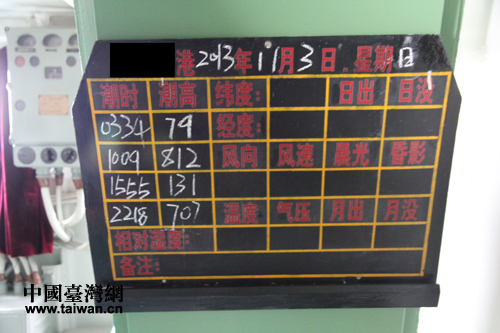 港2013年11月3日 星期日
潮时 潮高 纬度: 日出 日没
0334 79 经度:
1009 812 风向 风速 晨光 昏影
1555 131
2218 707 温度 气压 月出 月没
相对湿度:
备注:
中國臺灣網
www.taiwan.cn